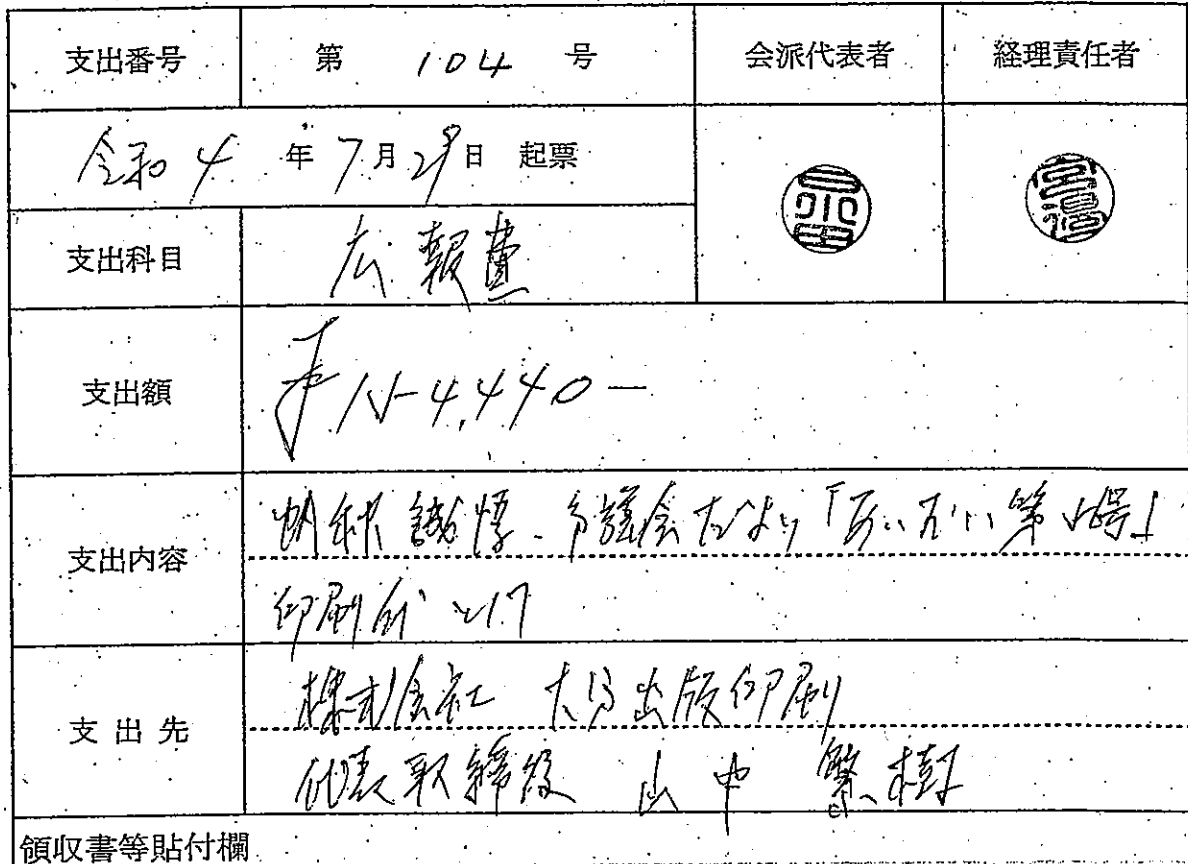 支出番号 第 104 号 会派代表者 経理責任者
令和 4 年 7 月 29 日 起票
支出科目 広報費
支出額 ¥154,440―
支出内容 市議会だより「あいおい第 号」
印刷代として
支出先 株式会社 大 出版印刷
代表取締役 山中 繁樹
領収書等貼付欄